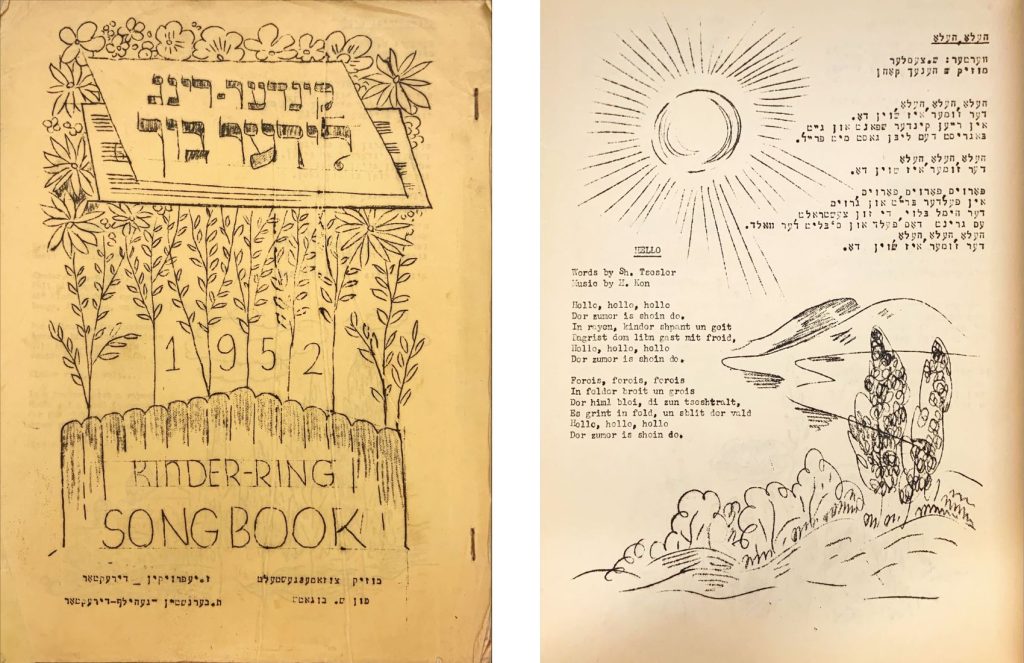 קינדער-רינג
לידער בוך
1952
KINDER-RING
SONGBOOK
מוזיק צוזאמענגעשטעלט
פון ש.
ז.יעפרויקין _ דירעקטאר
ח.בערנשטיין -געהילף-דירעקטאר
העלא,העלא
ווערטער: ש.צעסלער
מוזיק הענעך קאהן
העלא,העלא,העלא,
דער זומער איז שוין דא.
אין רייען קינדער שפאנט און גייט
באגריסט דעם ליבן גאסט מיט פרייד.
העלא,העלא,העלא
דער זומער איז שוין דא.
פארויס,פארויס,פארויס
אין פעלדער ברייט און גרויס
דער הימל בלוי, די זון צעשטראלט
עס גרינט דאס פעלד און וואלד.
העלא,העלא,העלא
דער זומער איז שוין דא.
HELLO
Words by Sh. Tsesler
Music by H. Kon
Hello, hello, hello
Der zumer is shoin do.
In reyen, kinder shpant un geit
Bagrist dem libn gast mit freid,
Hello, hello, hello
Der zumer is shoin do.
Forois, forois, forois
In felder breit un grois
Der himl bloi, di zun tseshtralt,
Es grint in feld, un der vald
Hello, hello, hello
Der zumer is shoin do.